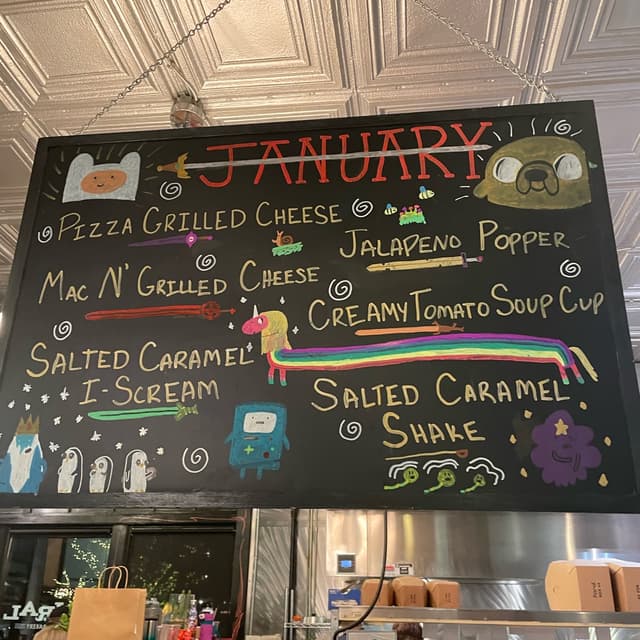 JANUARY
PIZZA GRILLED CHEESE
JALAPENO POPPER
MAC N' GRILLED CHEESE
CREAMY TOMATO SOUP CUP
SALTED CARAMEL
I-SCREAM
SALTED CARAMEL
SHAKE